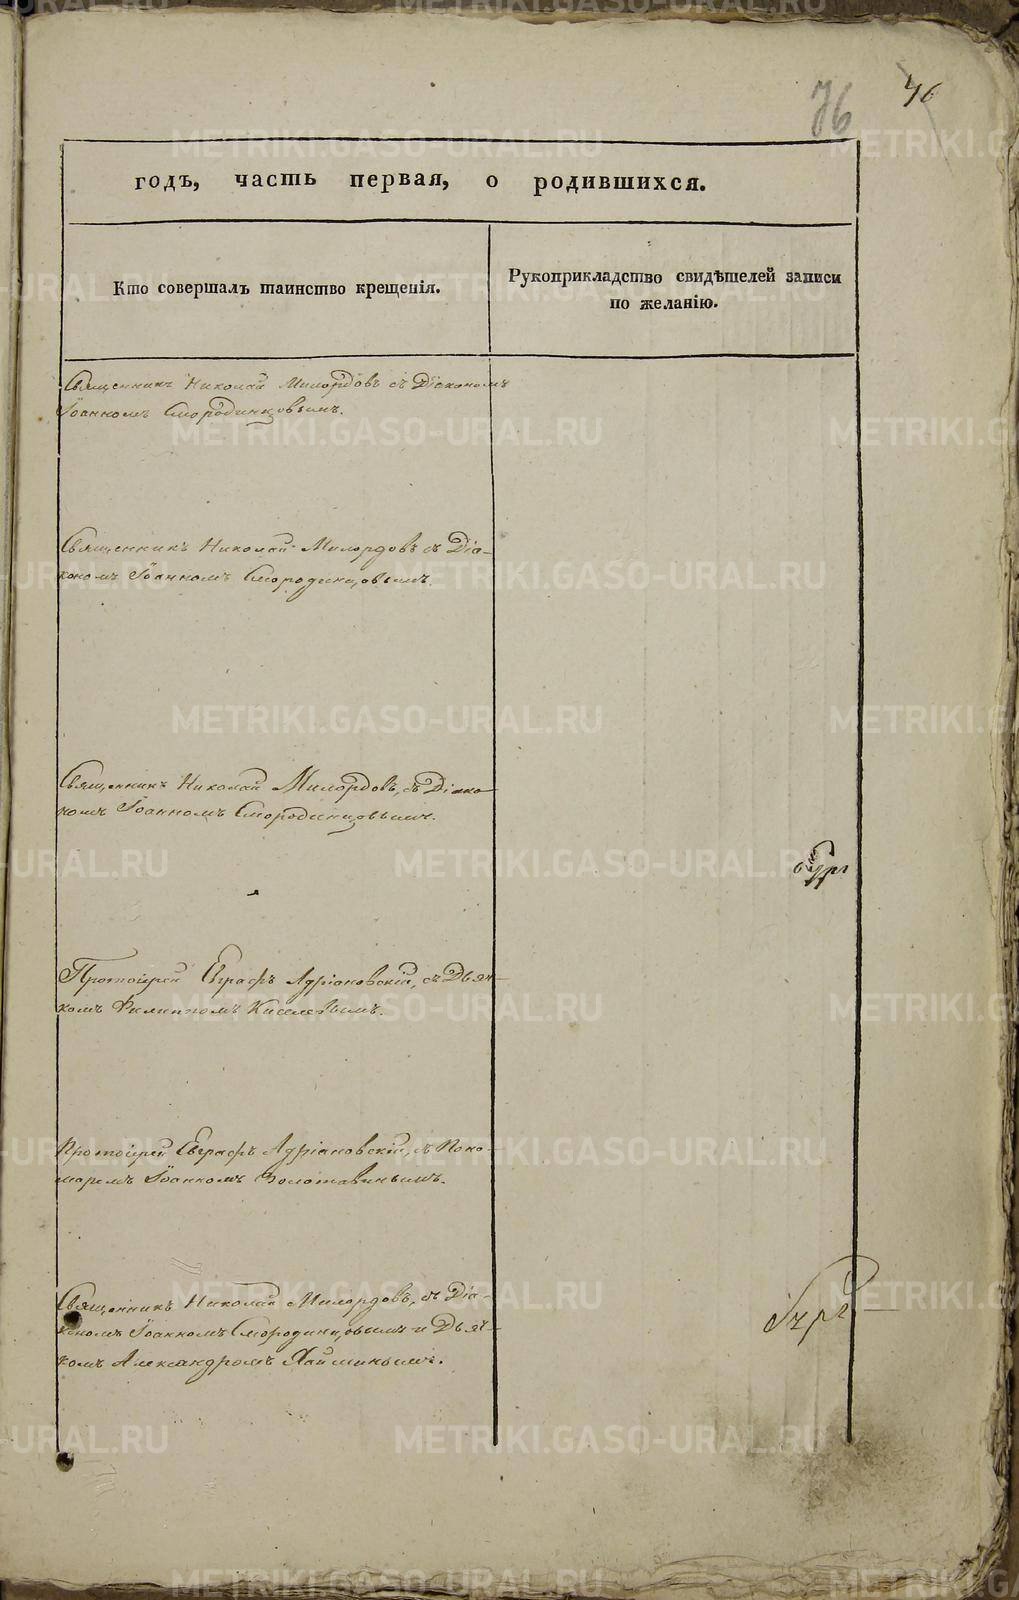 76
76
годъ, часть первая, о родившихся.
Кто совершалъ таинство крещенія.
Рукоприкладство свидѣтелей записи
по желанію.
Священникъ Николай Милордовъ съ Діакономъ
Іоанномъ Смородинцовымъ.
Священникъ Николай Милордовъ съ Діа-
кономъ Іоанномъ Смородинцовымъ.
Священникъ Николай Милордовъ, съ Діако
номъ Іоанномъ Смородинцовымъ.
Протоіерей Евграфъ Адріановскій, съ Дьяч-
комъ Филиппомъ Киселевымъ.
Протоіерей Евграфъ Адріановскій, съ Поно-
маремъ Іоанномъ Золотавинымъ.
Священникъ Николай Милордовъ, съ Діа-
кономъ Іоанномъ Смородинцовымъ и Дьяч-
комъ Александромъ
METRIKI.GASO-URAL.RU